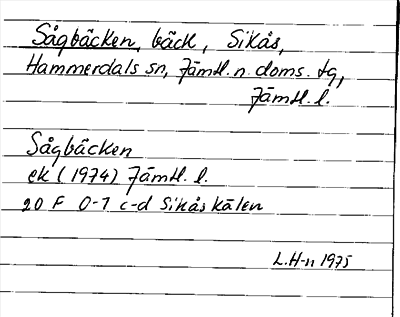 Sågbäcken, bäck, Sikås,
Hammerdals sn, Jämtl. n. doms. tg,
Jämtl. l.
Sågbäcken
ek (1974) Jämtl. l.
20 F 0-1 c-d Sikåskälen
L.H-n 1975